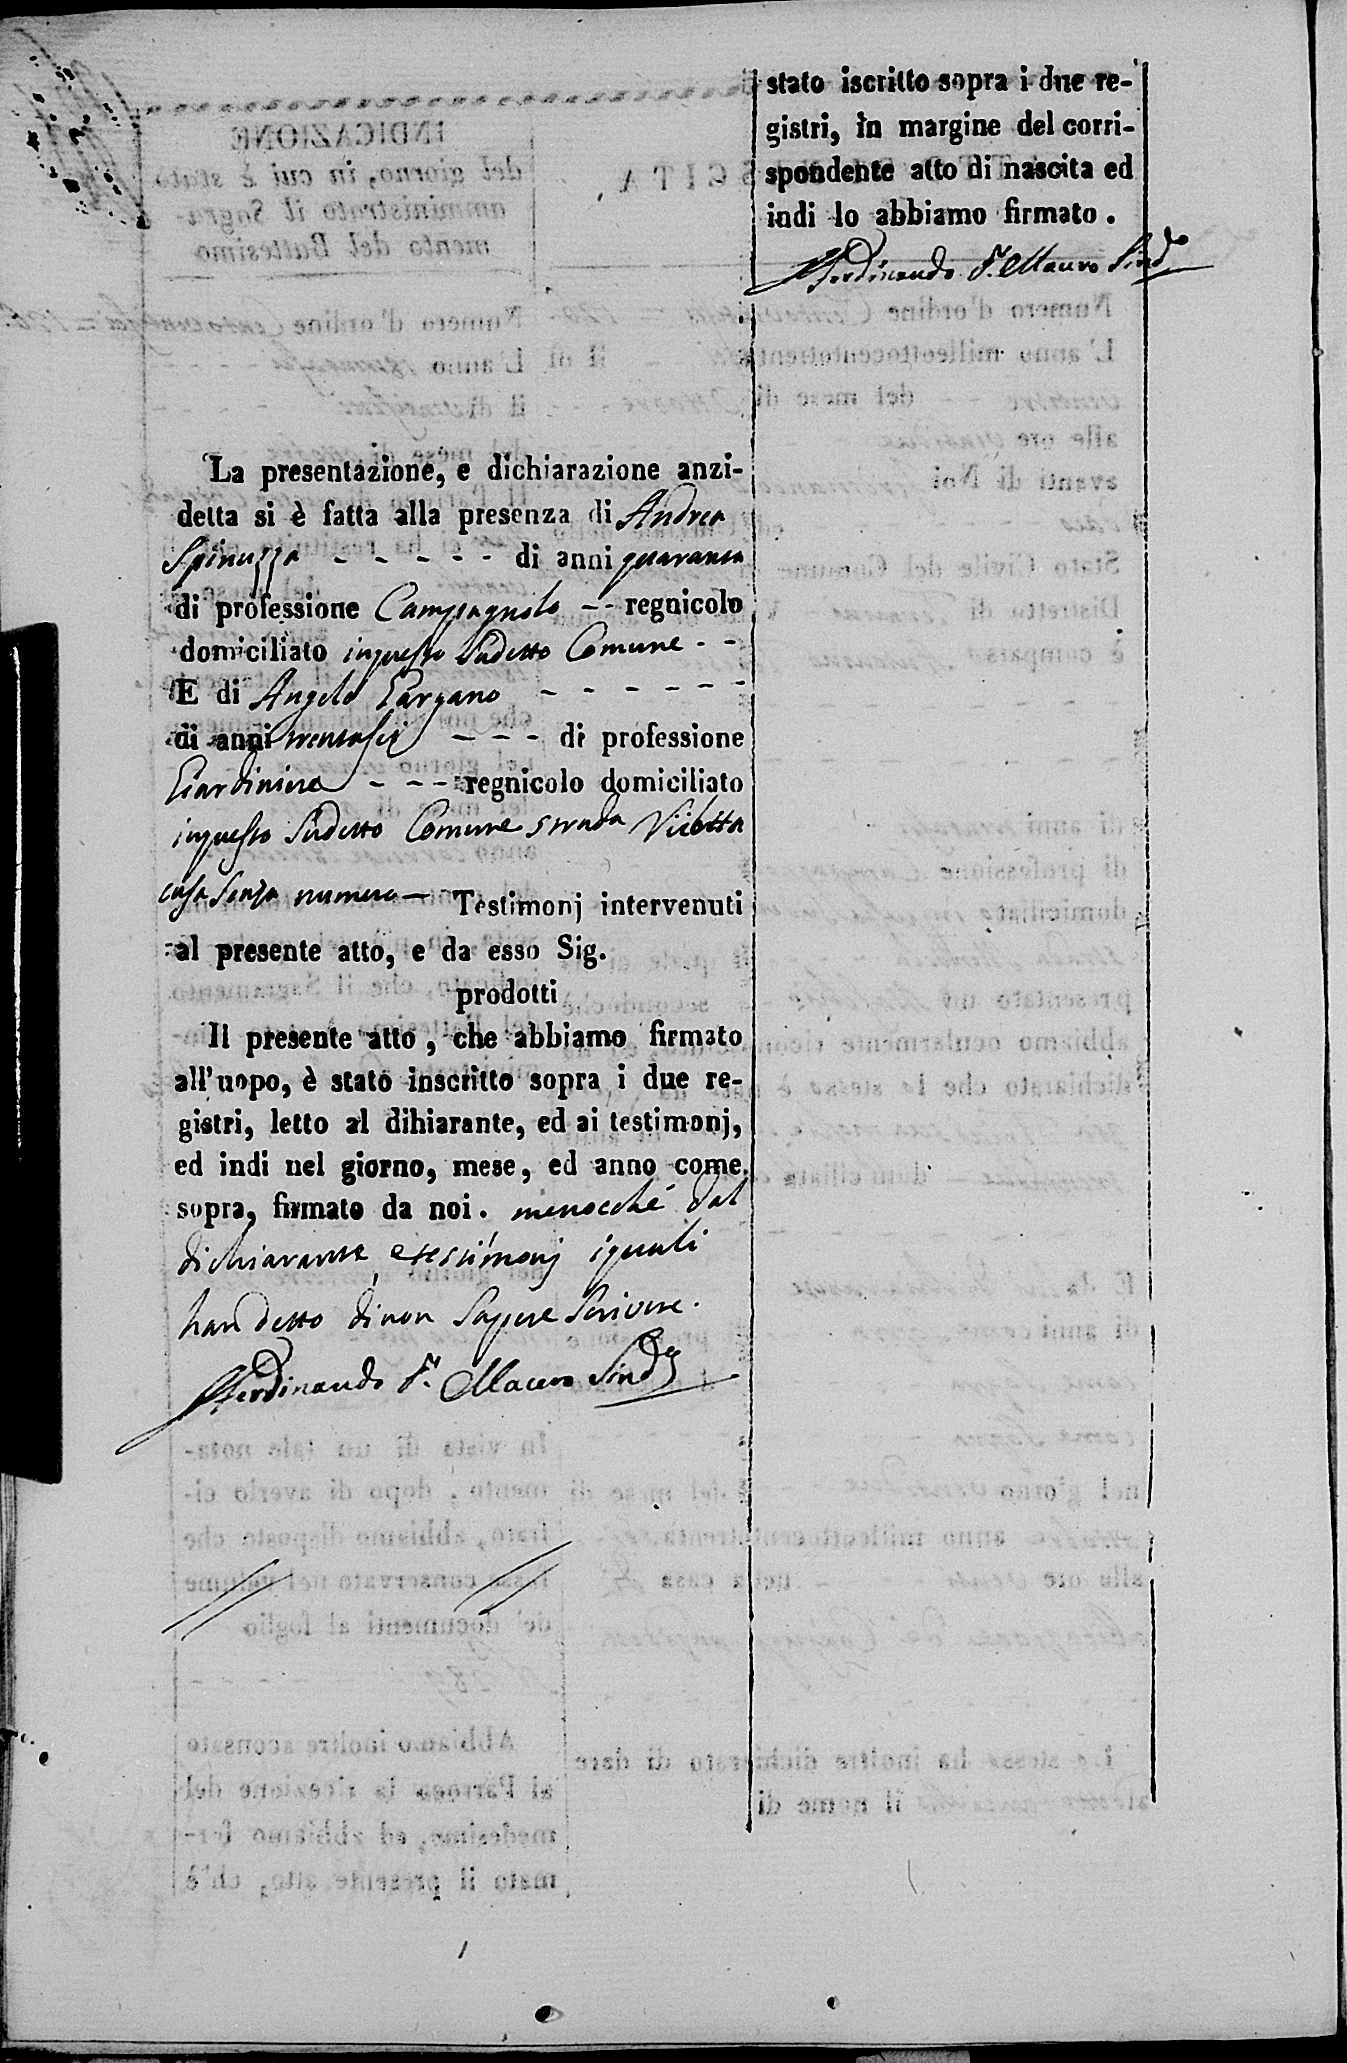 stato iscritto sopra i due re-
gistri, in margine del corri-
spondente atto di nascita ed
indi lo abbiamo firmato.
Ferdinando F. Mauro Sind.o
La presentazione, e dichiarazione anzi-
detta si è fatta alla presenza di Andrea
Spinuzza - - - - - di anni quaranta
di professione Campagnolo - - regnicolo
domiciliato in questo Sudetto Comune - -
E di Angelo Gargano - - - - - -
di anni trentasei - - - di professione
Giardiniere - - - regnicolo domiciliato
in questo Sudetto Comune strada
casa senza numero — Testimonj intervenuti
al presente atto, e da esso Sig.
prodotti
Il presente atto, che abbiamo firmato
all'uopo, è stato inscritto sopra i due re-
gistri, letto al dihiarante, ed ai testimonj,
ed indi nel giorno, mese, ed anno come
sopra, firmato da noi. menocché dal
dichiarante, e testimonj i quali
han detto di non sapere scrivere.
Ferdinando F. Mauro Sind.